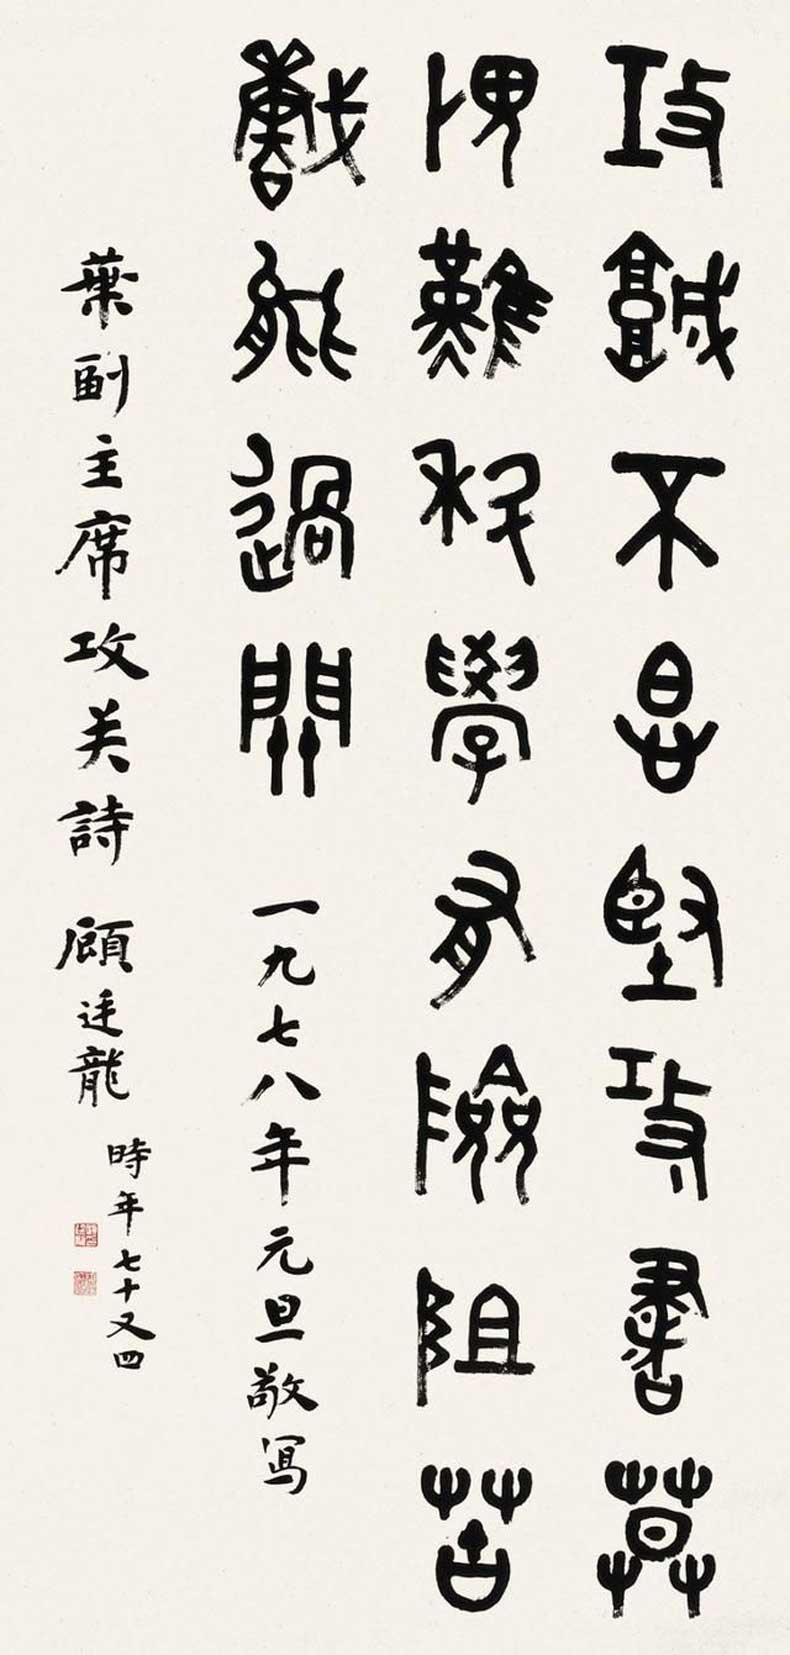 攻城不怕堅攻書莫
畏難科學有險阻苦
戰能過關 一九七八年元旦敬写
葉副主席攻关詩 顧廷龍 時年七十又四